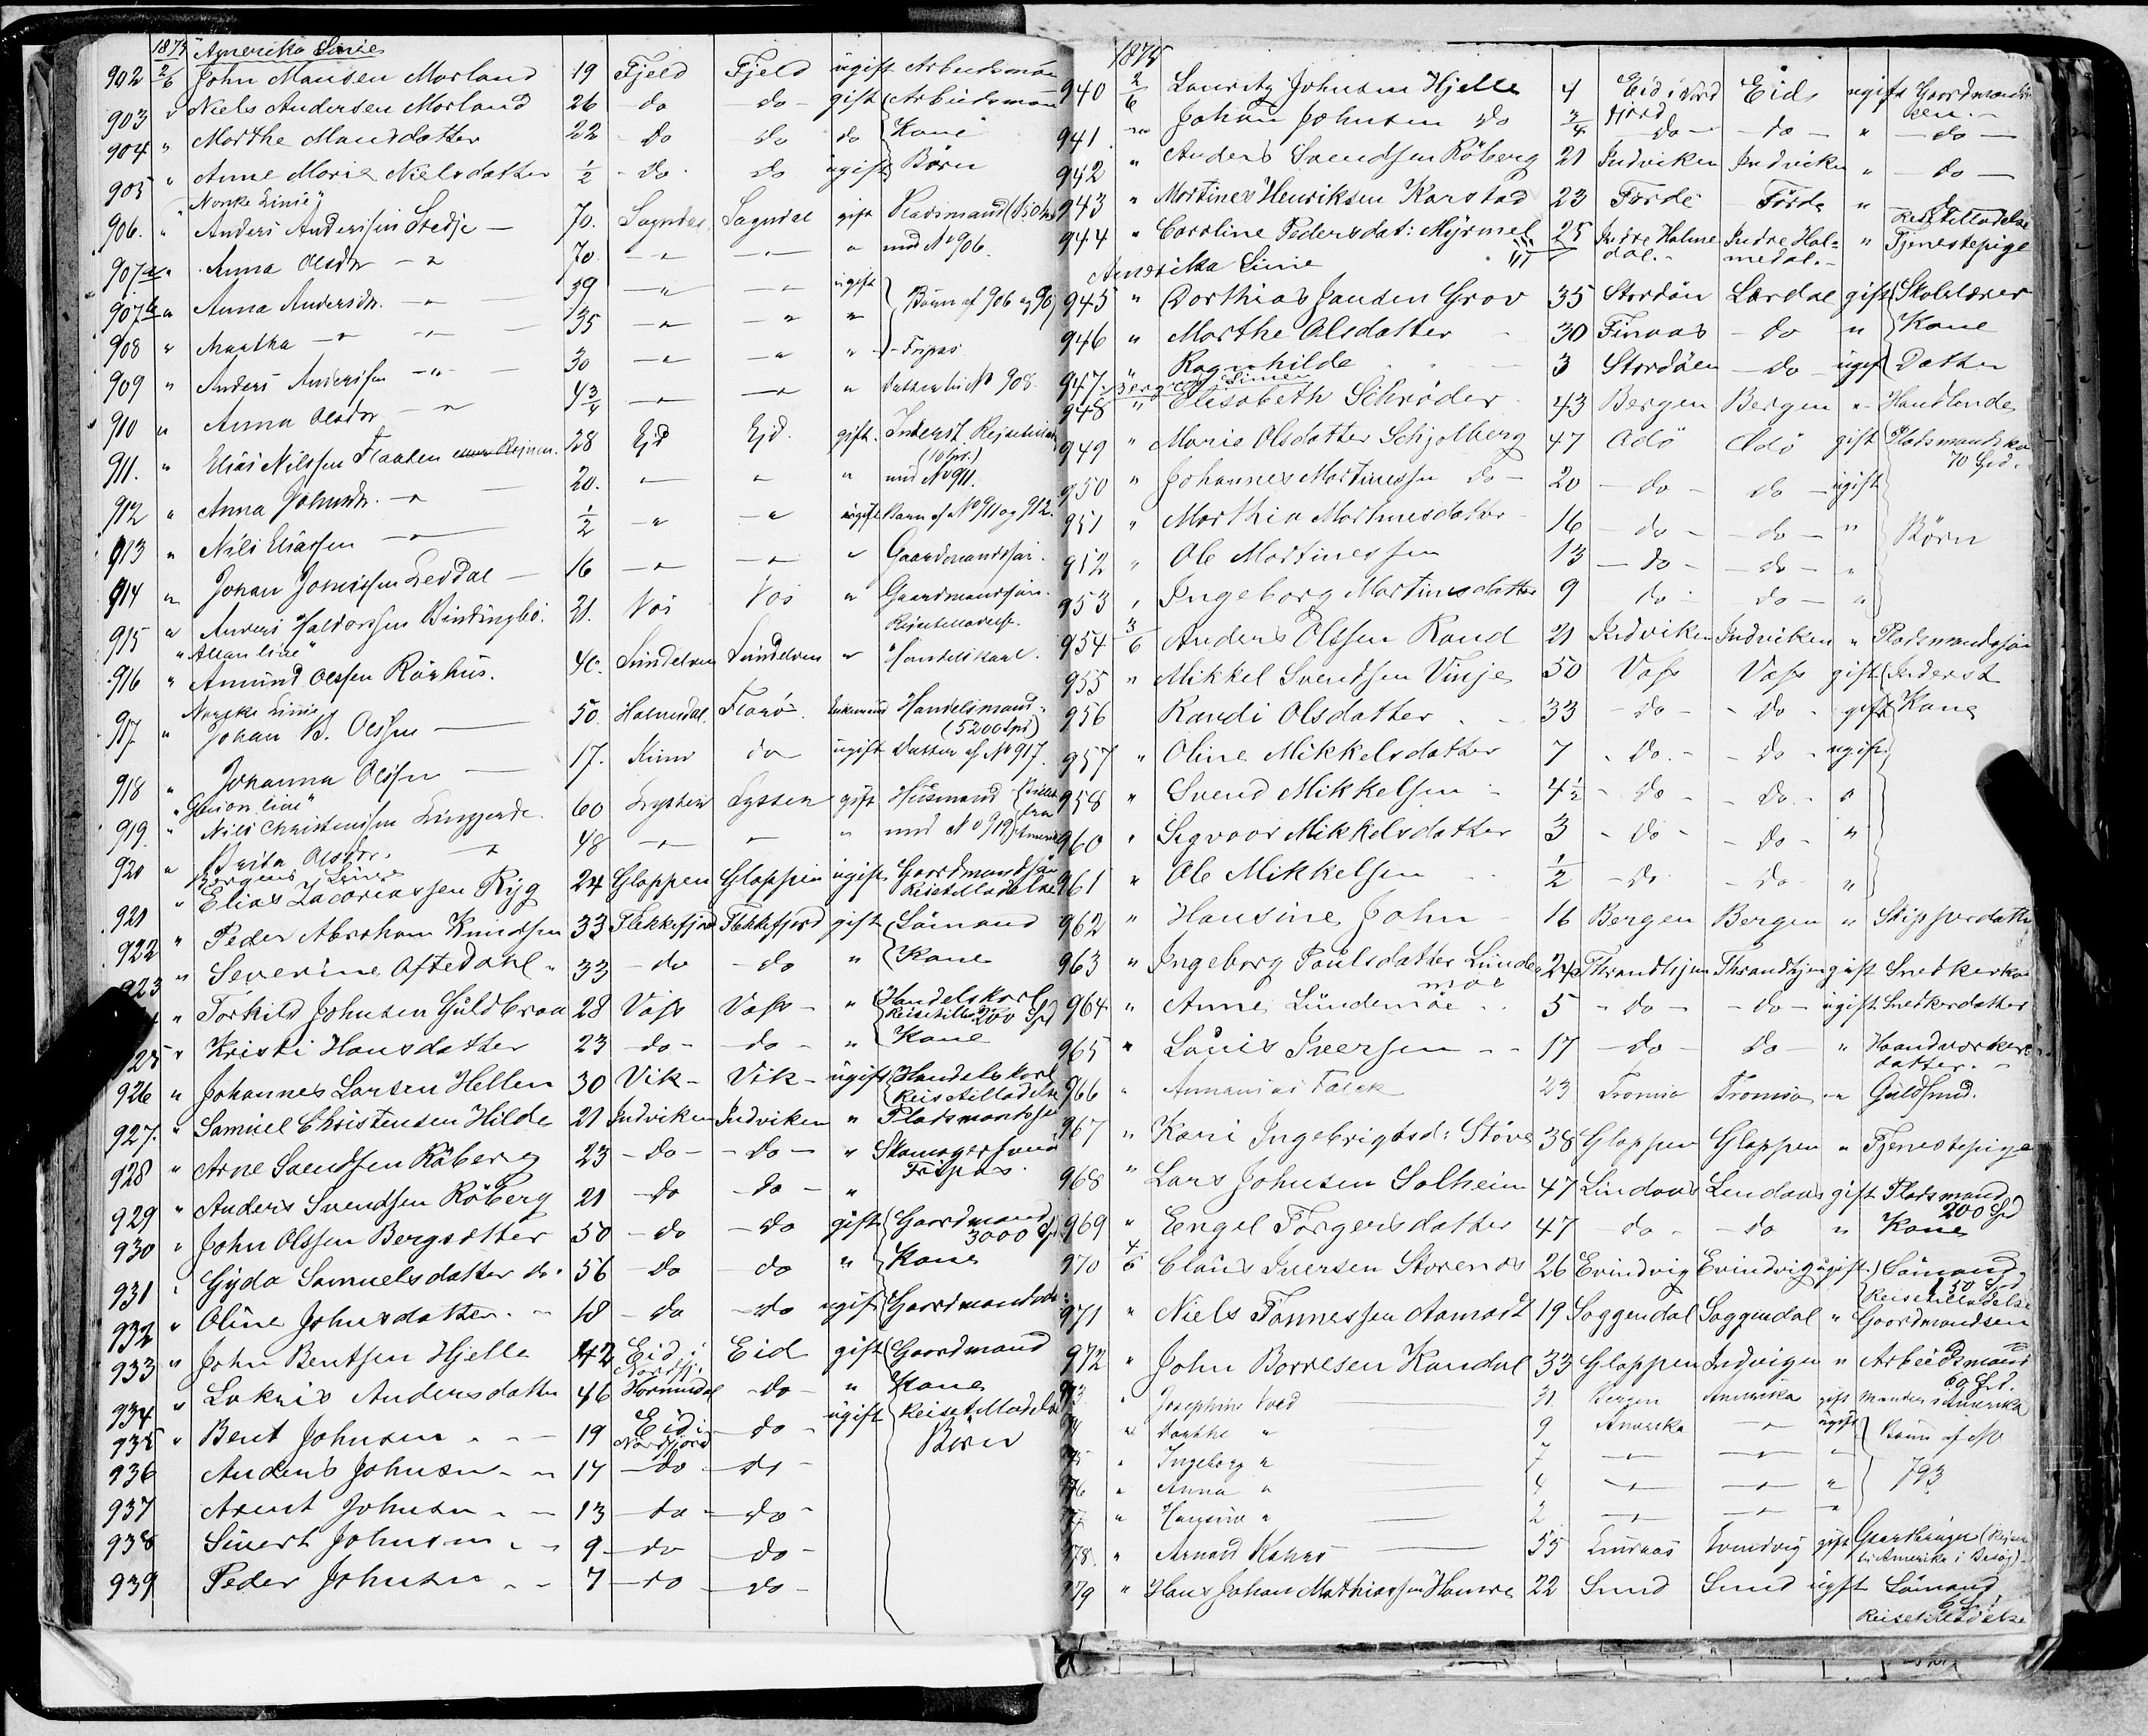 1875 "Amerika Linie
902 2/6 John Monsen Morland 19 Fjeld Fjeld ugift Arbeidsman
903 " Niels Andersen Morland 26 do do gift Arbeidsman
904 " Marthe Monsdatter 22 do do do Kone
905 " Anne Marie Nielsdatter 1/2 do do ugift Børn
"Norske Linie"
906. " Anders Anderssen Stedje 70. Sogndal Sogndal gift Pladsmand
907a " Anna Olsdr " 70 " " " med No 906.
907b " Anna Andersdr. " 39 " " ugift Børn af 906 og 907
908 " Martha " " 35 " " "
909 " Anders Anderssen " 30 " " " Fripas
910 " Anna Olsdr " 4 3/4 " " " Datter til No 908.
911. " Elias Nilssen Flaaten 28 Eid Eid. gift.
912 " Anna Johnsdr. " 20. " " " med No 911.
913 " Nils Eliassen " 1/2 " " ugift Barn af No 911 og 912.
914 " Johan Jonassen Leddal 16 " " " Gaardmandssøn.
915 " Anders Haldorssen 21. Vos Vos " Gaardmandssøn. Rejsetilladelse.
"Allan line"
916 " Amund Olssen Rörhus. 40. Søndelven Søndelven " Handelskarl.
Norske Linie
917. " Johan B. Olssen 50 Florø Enkemand Handelsmand (5200 Spd)
918 " Johanna Olssen 17. Kinn do ugift Datter af No 917.
"Guion line"
919. " Nils Christenssen 60 Lyster Lyster gift Husmand
920 " Brita Olsdr. " 48 " " " med No 919
Bergens Linie
921 " Elias Zacariassen Ryg 24 Gloppen Gloppen ugift Gaardmandssøn Reisetilladelse
922 " Peder Abraham Knudsen 33 Flekkefjord Flekkefjord gift Sømand
923 " Severine Aftedahl " 33 do do " Kone
" Torkild Johnsen Guldbraa 28 Voss Voss " Handelskarl 200 Spd
925 " Kristi Hansdatter 23 do do " Kone
926 " Johannes Larsen Hellen 30 Vik Vik ugift Handelskarl Reisetilladelse
927. " Samuel Christensen Hilde 21 Indviken Indviken " Pladsmandssøn
928 " Arne Svendsen Röberg 23 do do " Skomagersvend Fripas.
929 " Anders Svendsen Röberg 21 do do "
930 " John Olssen Bergsætter 50 do do gift Gaardmand 3000 Spd
931 " Gyda Samuelsdatter do. 56 do do " Kone
932 " Oline Johnsdatter " 18 do do ugift
933 " John Bentsen Hjelle 42 Eid i Nordfj. Eid gift Gaardmand
934 " Lokris Andersdatter 46 Hornindal do " Kone
935 " Bent Johnsen " 19 Eid i Nordfjord do ugift Reisetilladelse Børn
936 Anders Johnsen " 17 do do
937 Arent Johnsen " 13 do do
938 Sivert Johnsen " 9 do do
939 Peder Johnsen " 7 do do
1875
940 2/6 Lauritz Johnsen Hjelle 4 Eid i Nordfjord Eid ugift
941. " Johan Johnsen do 3/4 do do " do
942 " Anders Svendsen Röberg 21 Indviken Indviken " do
943 " Martines Henriksen Karstad 23 Førde Førde " do Reisetilladelse
944 " Caroline Pedersdat: Myrmel 25 Indre Holmedal. Indre Holmedal. " Tjenestepige
Amerika Linie
945 " Dorthias Jansen Grov 35 Stordøn Lærdal gift Skolelærer
946 " Marthe Olsdatter 30 Finaas do " Kone
947. " Ragnhilde 3 Stordøen do ugift Datter
Bergens Linien
948 " Elisabeth Schrøder 43 Bergen Bergen " Handlende
949 " Marie Olsdatter Schjolberg 47 Adö Adö gift 70 Spd.
950 " Johannes Martinessen do 20 do do ugift
951 " Marthia Martinesdatter 16 do do " Børn
952 " Ole Martinessen 13 do do "
953 " Ingeborg Martinesdatter 9 do do "
954 3/6 Anders Olssen Rand 21 Indviken Indviken " Pladsmandssøn
955 " Mikkel Svendsen Vinje 50 Voss Voss gift Inderst
956 Randi Olsdatter 33 do do gift Kone
957 " Oline Mikkelsdatter 7 do do ugift
958 " Svend Mikkelsen 4 1/2 do do "
960 " Sigvaar Mikkelsdatter 3 do do "
961 " Ole Mikkelsen 1/2 do do "
962 " Hansine John 16 Bergen Bergen " Skipperdatter
963 " Ingeborg Poulsdatter Lundemoe 24 Thrandhjem Thrandhjem gift
964 " Anne Lundemoe 5 do do ugift Snedkerdatter
965 " Louis Iversen 17 do do " Haandværkerdatter.
966 " Annanias Falck 23 Tromsø Tromsø " Guldsmed.
967 " Kari Ingebrigtsd: Støve 38 Gloppen Gloppen " Tjenestepige
968 " Lars Johnsen Solheim 47 Lindaas Lindaas gift Pladsmand 200 Spd
969 " Engel Torgersdatter 47 do do " Kone
970 4/6 Claus Iversen Storenes 26 Evindvig Evindvig ugift Sømand 150 Spd Reisetilladelse
971 " Niels Tonnessen Aamodt 19 Soggendal Soggendal " Gaardmandsen
972 " John Borresen Kandal 33 Gloppen Indvigen " Arbeidsmand 60 Spd.
973. " Josephine 31 Bergen Amerika gift Manden i Amerika
974 " Dorthe " 9 Amerika " ugift Børn af No 793
975 " Ingeborg " 7 " " "
976 " Anna " 4 " " "
977 " Hansine " 2 " " "
978. " Arnold 55 Lindaas Evindvig gift Gaardbruger
979 " Hans Johan Mathiassen Hamre 22 Sund Sund ugift Sømand Reisetilladelse